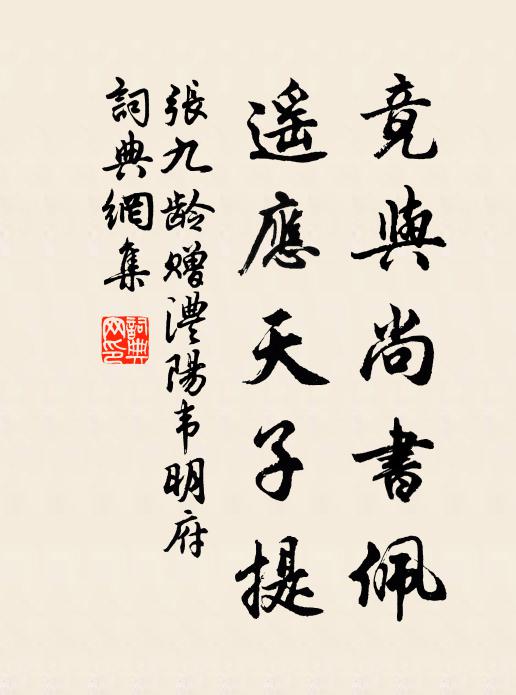 竟與尚書佩
遥應天子提
張九齡贈澧陽韦明府
詞典網集
詞典网印